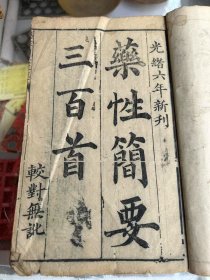 光緒六年新刊
藥性簡要
三百首
較對無訛